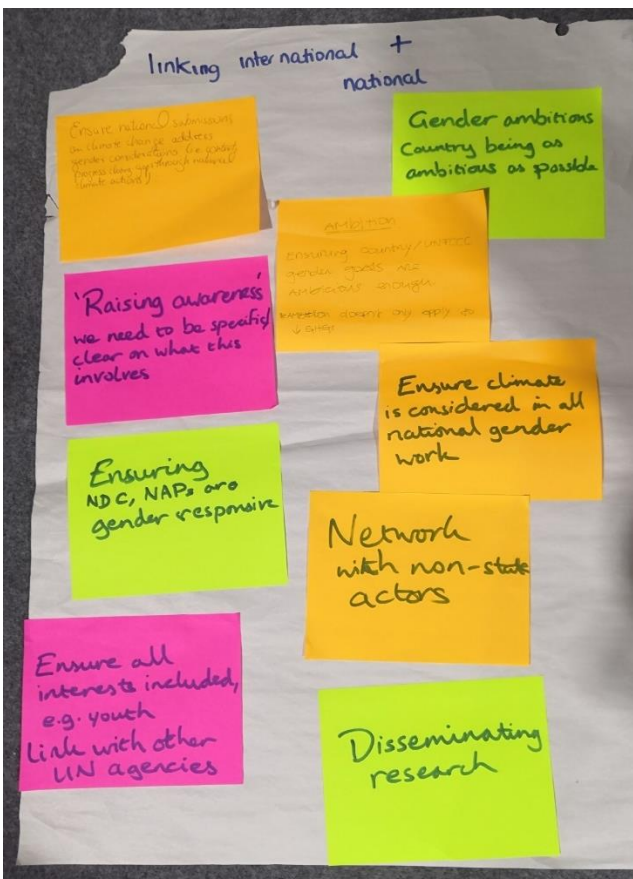 linking international +
national
Ensure national submissions
on climate change address
gender considerations (i.e. gender
through national
climate actions)
Gender ambitions
Country being as
ambitious as possible
AMBITION
ENSURING COUNTRY/UNFCCC
gender goals are
AMBITIOUS enough
doesn't only apply to
'Raising awareness'
we need to be specific/
clear on what this
involves
Ensure climate
is considered in all
national gender
work
Ensuring
NDC, NAPs are
gender responsive
Network
with non-state
actors
Ensure all
interests included,
e.g. youth
Link with other
UN agencies
Disseminating
research